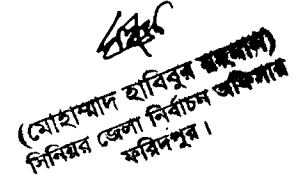 (মোহাম্মাদ হাবিবুর রহমান)
সিনিয়র জেলা নির্বাচন অফিসার
ফরিদপুর।